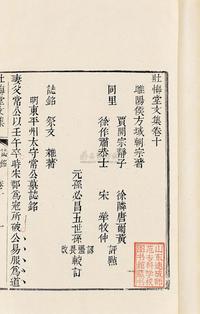 壯悔堂文集卷十
雎陽侯方域朝宗著
賈開宗靜子
徐隣唐爾黃
同里
評點
徐作肅恭士
宋犖牧仲
元孫必昌五世孫
較訂
誌銘
祭文
雜著
明東平州太守常公墓誌銘
妻父常公以壬午年時宋郡為宼所破公易服為道
壯悔堂文集
誌銘
卷十